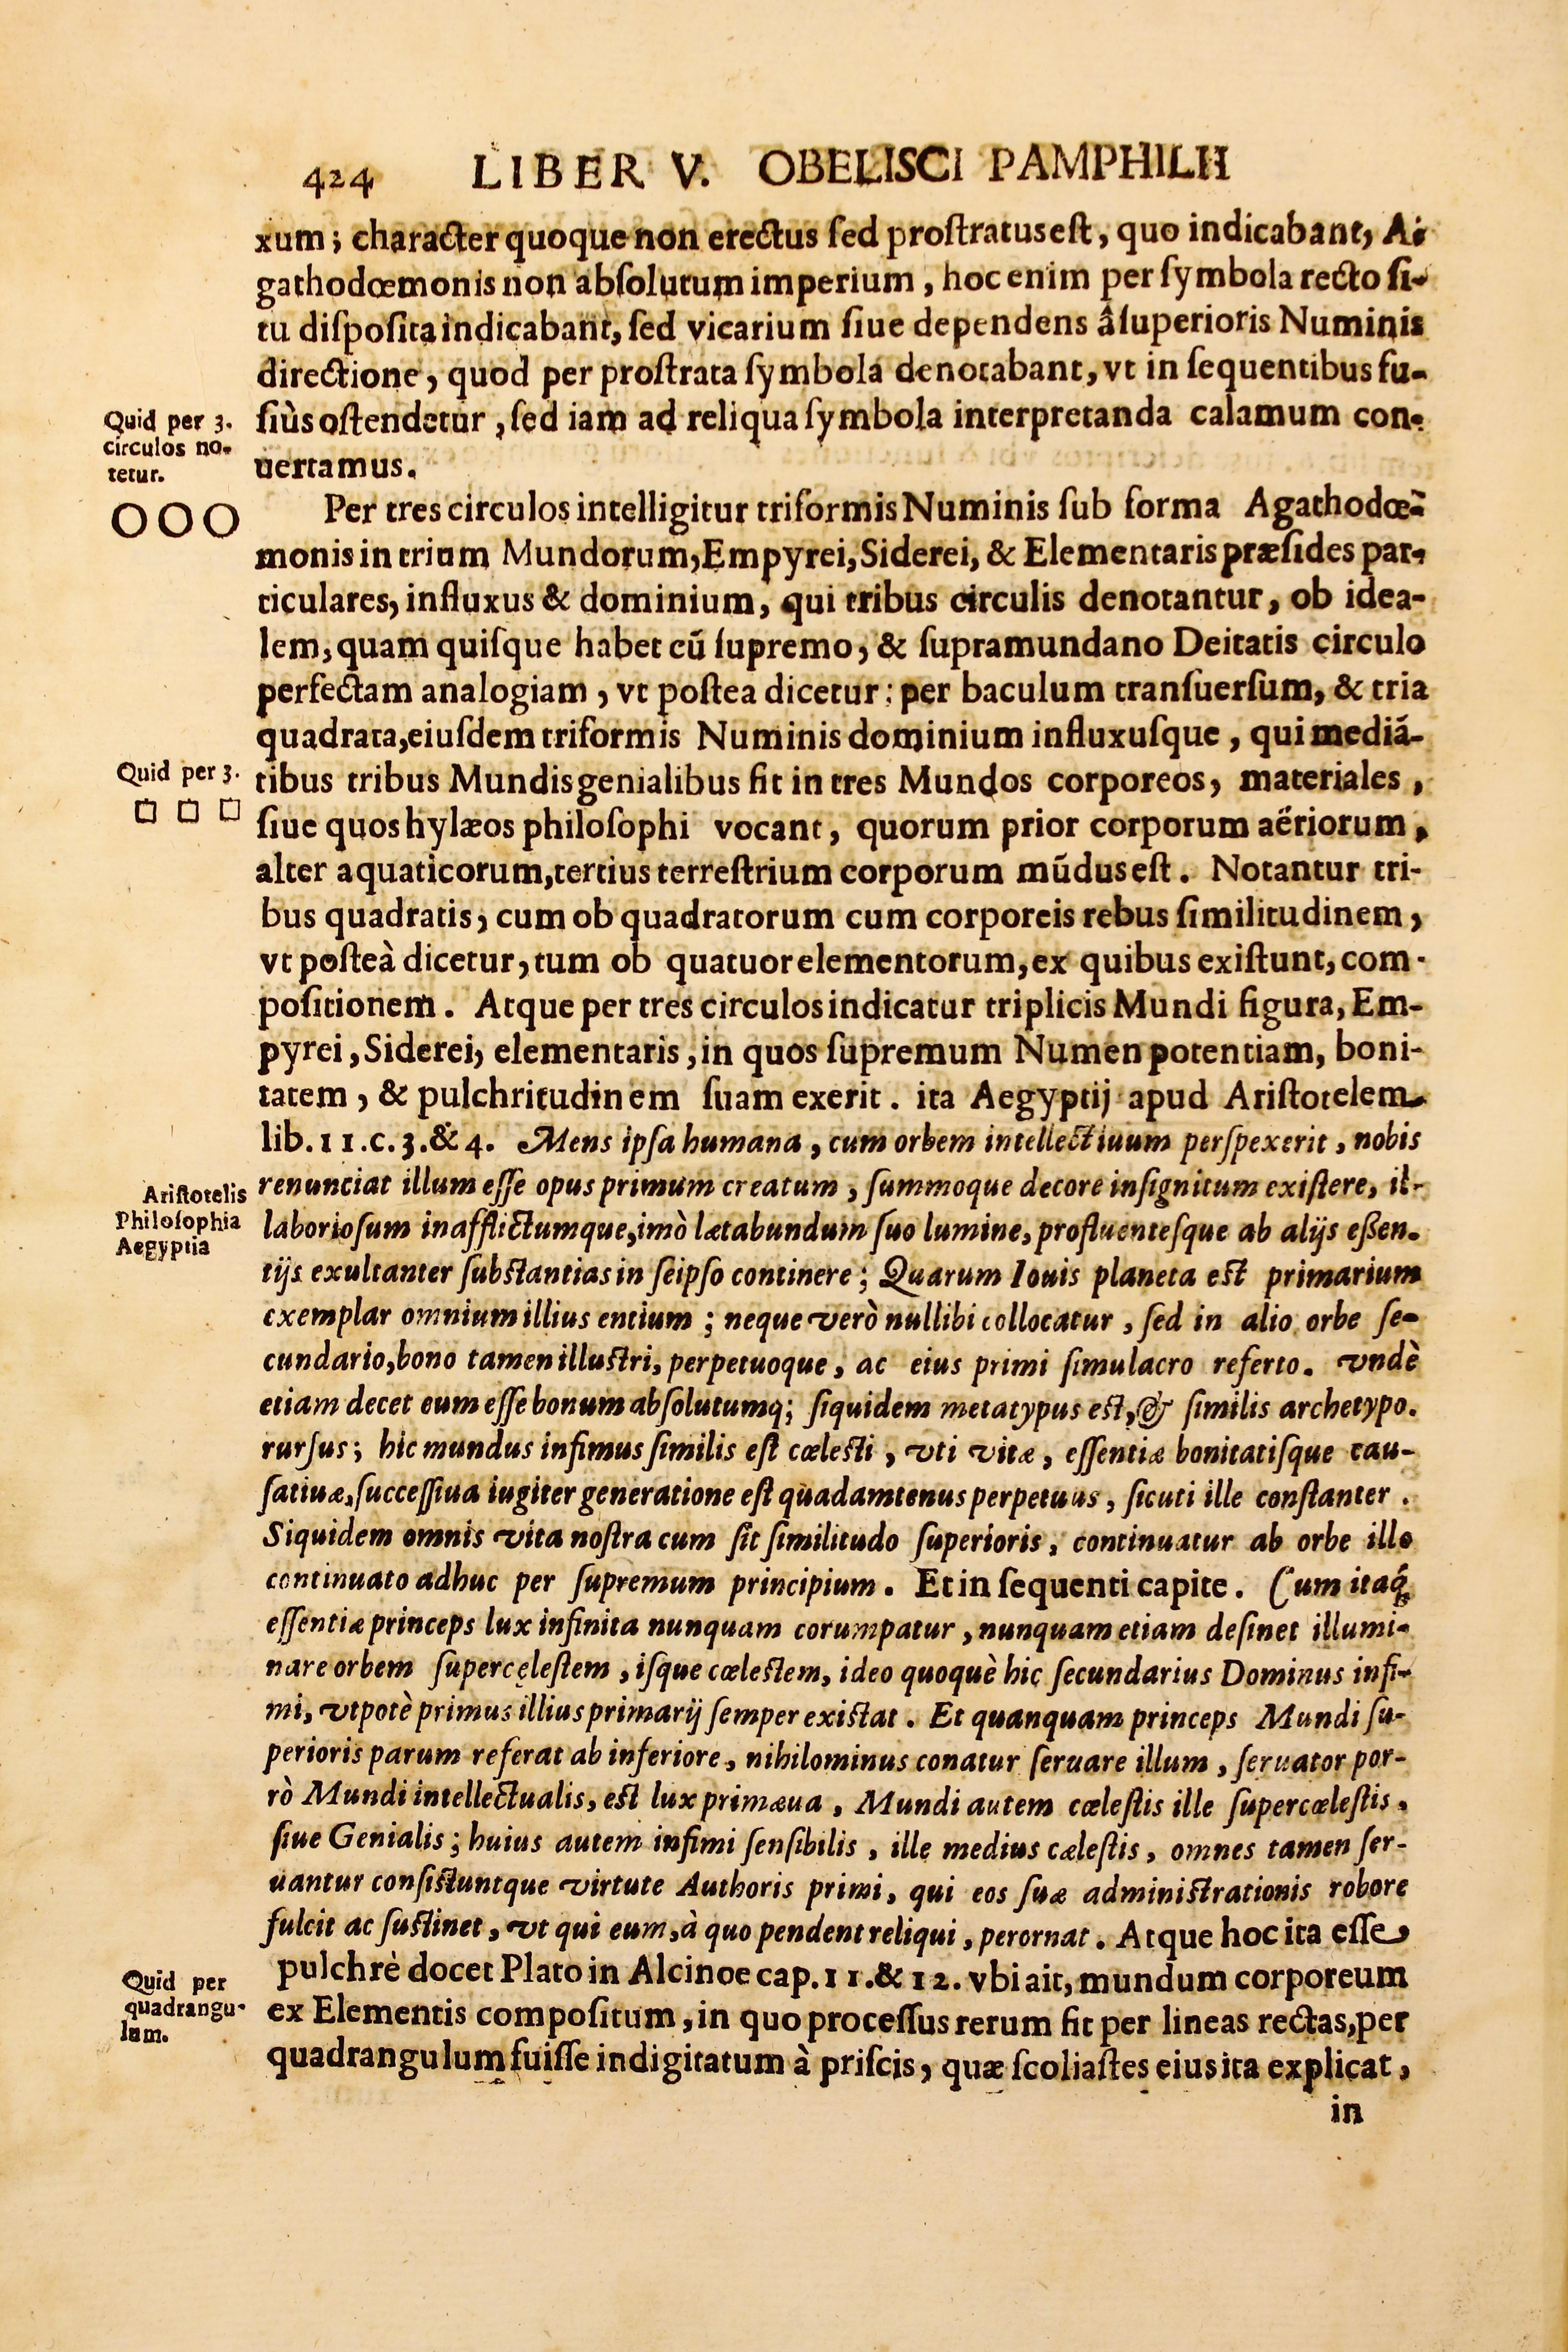 424 LIBER V. OBELISCI PAMPHILII
xum; character quoque non erectus ſed proſtratus eſt, quo indicabant, A-
gathodœmonis non abſolutum imperium, hoc enim per ſymbola recto ſi-
tu diſpoſita indicabant, ſed vicarium ſiue dependens â ſuperioris Numinis
directione, quod per proſtrata ſymbola denotabant, vt in ſequentibus fu-
ſiùs oſtendetur, ſed iam ad reliqua ſymbola interpretanda calamum con-
uertamus.
Quid per 3.
circulos no-
tetur.
OOO
Per tres circulos intelligitur triformis Numinis ſub forma Agathodœ-
monis in trium Mundorum, Empyrei, Siderei, & Elementaris præſides par-
ticulares, influxus & dominium, qui tribus circulis denotantur, ob idea-
lem, quam quiſque habet cũ ſupremo, & ſupramundano Deitatis circulo
perfectam analogiam, vt poſtea dicetur: per baculum tranſuerſum, & tria
quadrata, eiuſdem triformis Numinis dominium influxuſque, qui mediã-
tibus tribus Mundis genialibus fit in tres Mundos corporeos, materiales,
ſiue quos hylæos philoſophi vocant, quorum prior corporum aëriorum,
alter aquaticorum, tertius terreſtrium corporum mũdus eſt. Notantur tri-
bus quadratis, cum ob quadratorum cum corporeis rebus ſimilitudinem,
vt poſteà dicetur, tum ob quatuor elementorum, ex quibus exiſtunt, com-
poſitionem. Atque per tres circulos indicatur triplicis Mundi figura, Em-
pyrei, Siderei, elementaris, in quos ſupremum Numen potentiam, boni-
tatem, & pulchritudinem ſuam exerit. ita Aegyptij apud Ariſtotelem
lib. 11. c. 3. & 4. Mens ipſa humana, cum orbem intellectiuum perſpexerit, nobis
renunciat illum eſſe opus primum creatum, ſummoque decore inſignitum exiſtere, il-
laborioſum inafflictumque, imò lætabundum ſuo lumine, profluenteſque ab alijs eßen-
tijs exultanter ſubstantias in ſeipſo continere; Quarum Iouis planeta est primarium
exemplar omnium illius entium; neque verò nullibi collocatur, ſed in alio orbe ſe-
cundario, bono tamen illustri, perpetuoque, ac eius primi ſimulacro referto. vndè
etiam decet eum eſſe bonum abſolutumq; ſiquidem metatypus est, & ſimilis archetypo.
rurſus; hic mundus infimus ſimilis eſt cœlesti, vti vitæ, eſſentiæ bonitatiſque cau-
ſatiuæ, ſucceſſiua iugiter generatione eſt quadamtenus perpetuus, ſicuti ille conſtanter.
Siquidem omnis vita noſtra cum ſit ſimilitudo ſuperioris, continuatur ab orbe illo
continuato adhuc per ſupremum principium. Et in ſequenti capite. Cum itaq́;
eſſentiæ princeps lux infinita nunquam corumpatur, nunquam etiam deſinet illumi-
nare orbem ſuperceleſtem, iſque cœleſtem, ideo quoquè hic ſecundarius Dominus infi-
mi, vtpotè primus illius primarij ſemper exiſtat. Et quanquam princeps Mundi ſu-
perioris parum referat ab inferiore, nihilominus conatur ſeruare illum, ſeruator por-
rò Mundi intellectualis, est lux primæua, Mundi autem cœleſtis ille ſupercœleſtis,
ſiue Genialis; huius autem infimi ſenſibilis, ille medius cæleſtis, omnes tamen ſer-
uantur conſiſtuntque virtute Authoris primi, qui eos ſuæ administrationis robore
fulcit ac ſustinet, vt qui eum, à quo pendent reliqui, perornat. Atque hoc ita eſſe
pulchrè docet Plato in Alcinoe cap. 11. & 12. vbi ait, mundum corporeum
ex Elementis compoſitum, in quo proceſſus rerum fit per lineas rectas, per
quadrangulum fuiſſe indigitatum à priſcis, quæ ſcoliaſtes eius ita explicat,
in
Quid per 3.
□ □ □
Ariſtotelis
Philoſophia
Aegyptia
Quid per
quadrangu-
lum.